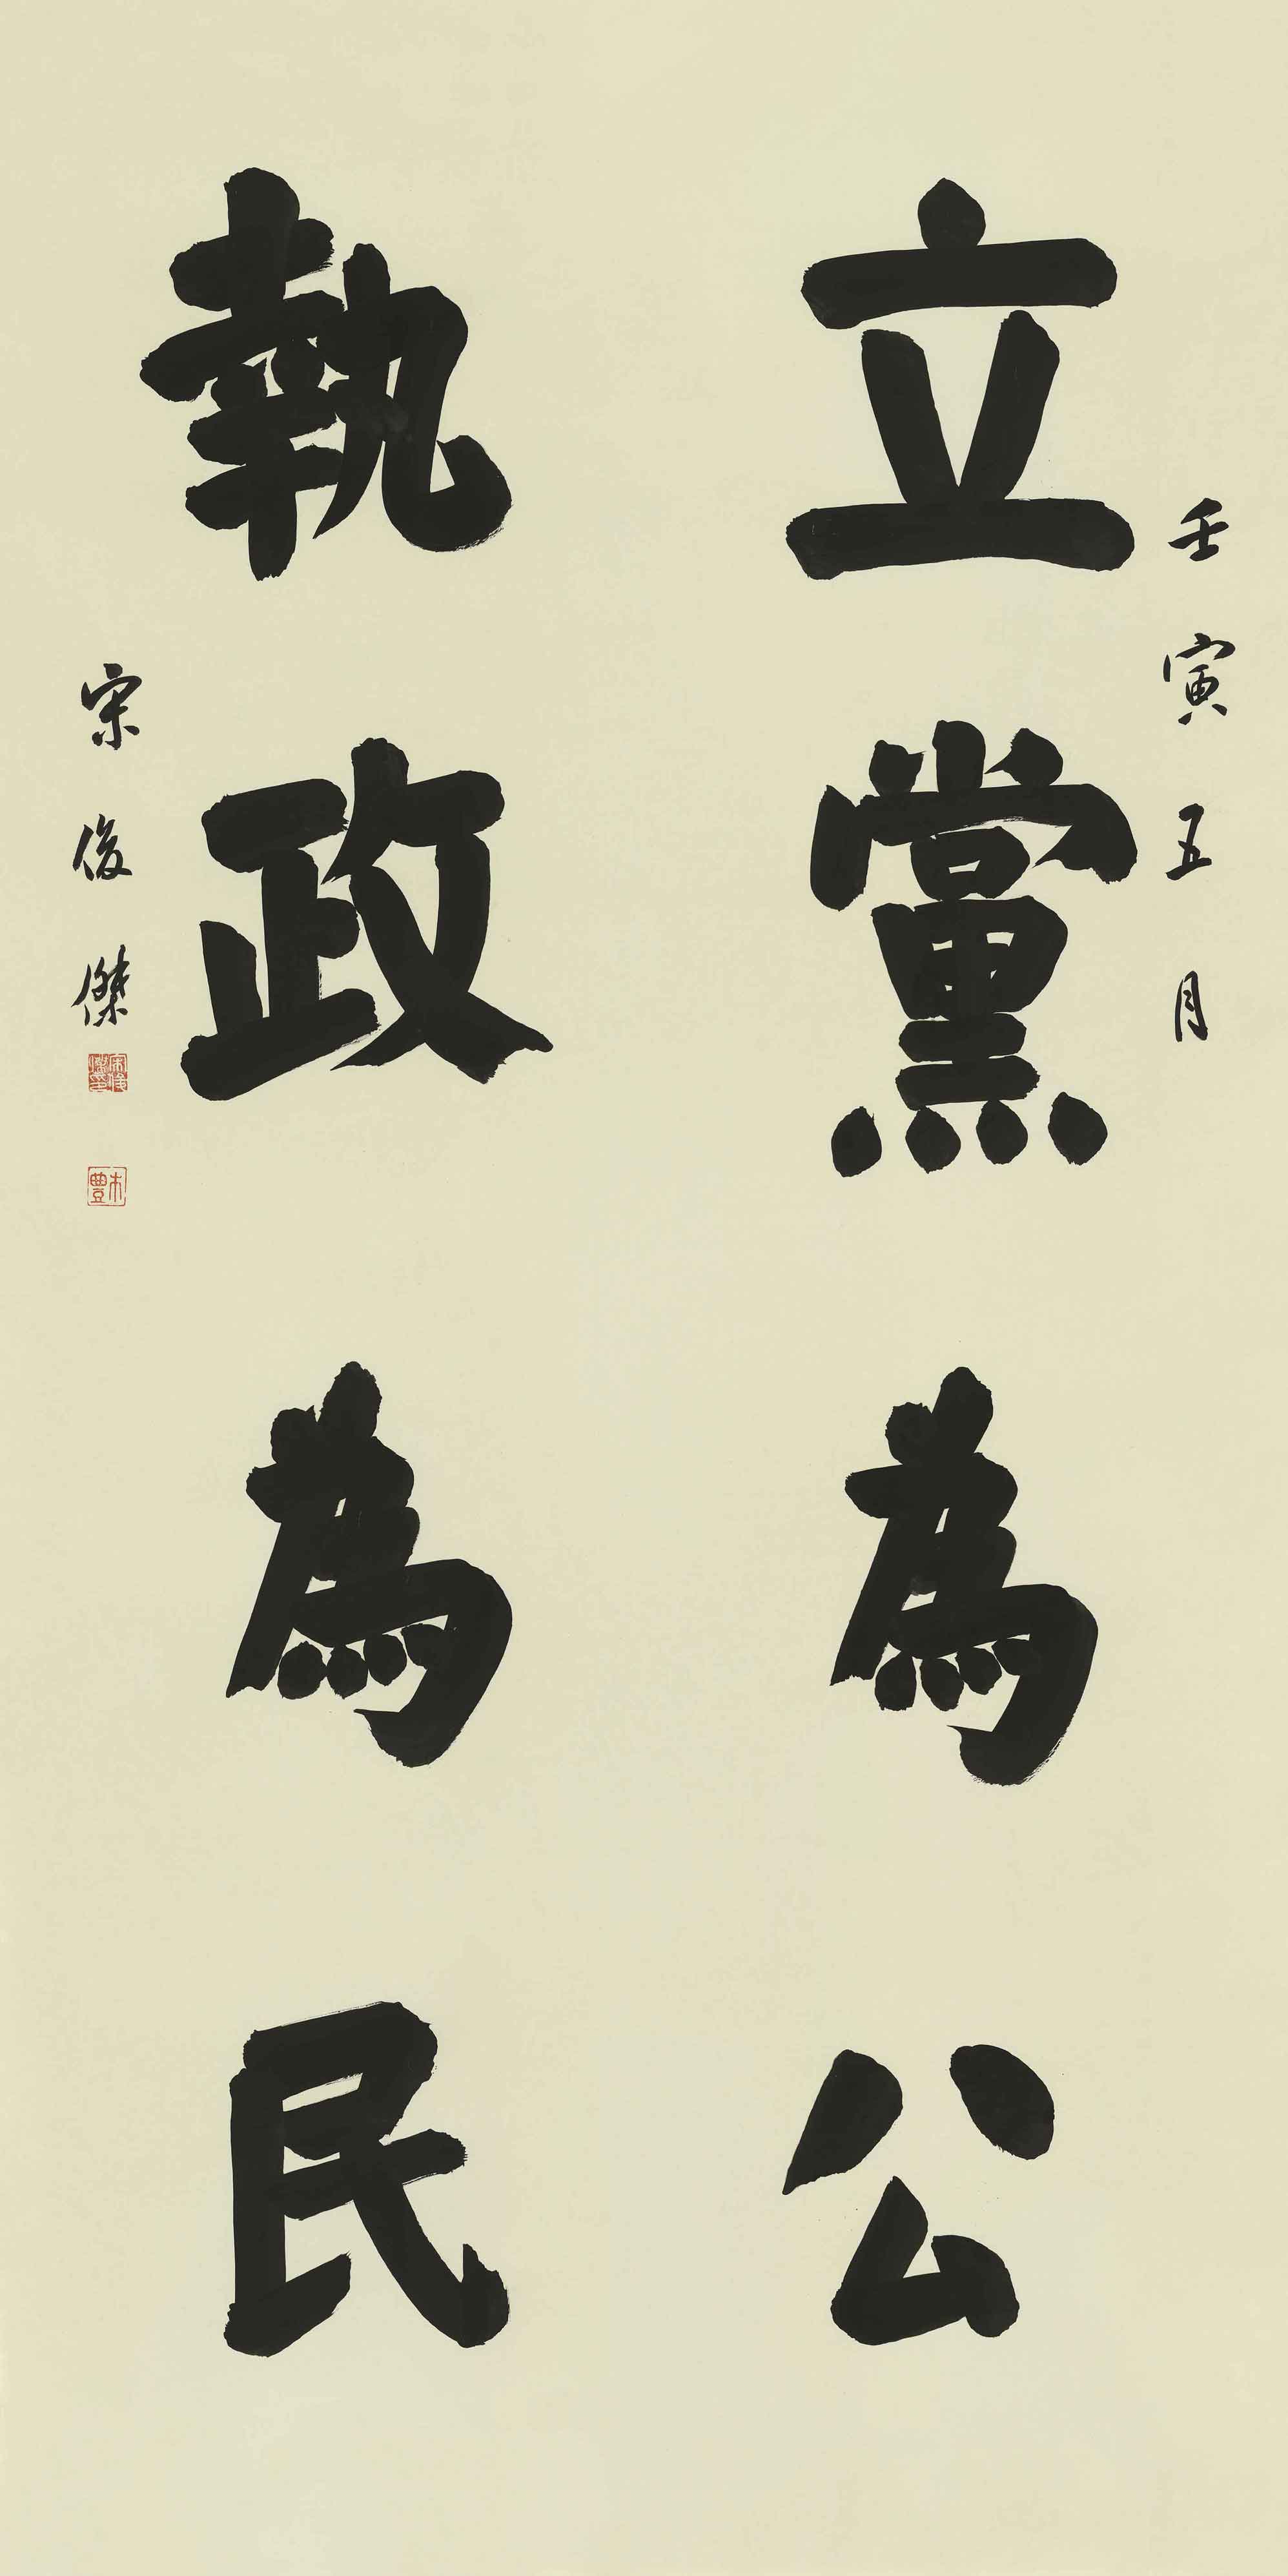 壬寅五月
立黨為公
執政為民
宋俊傑